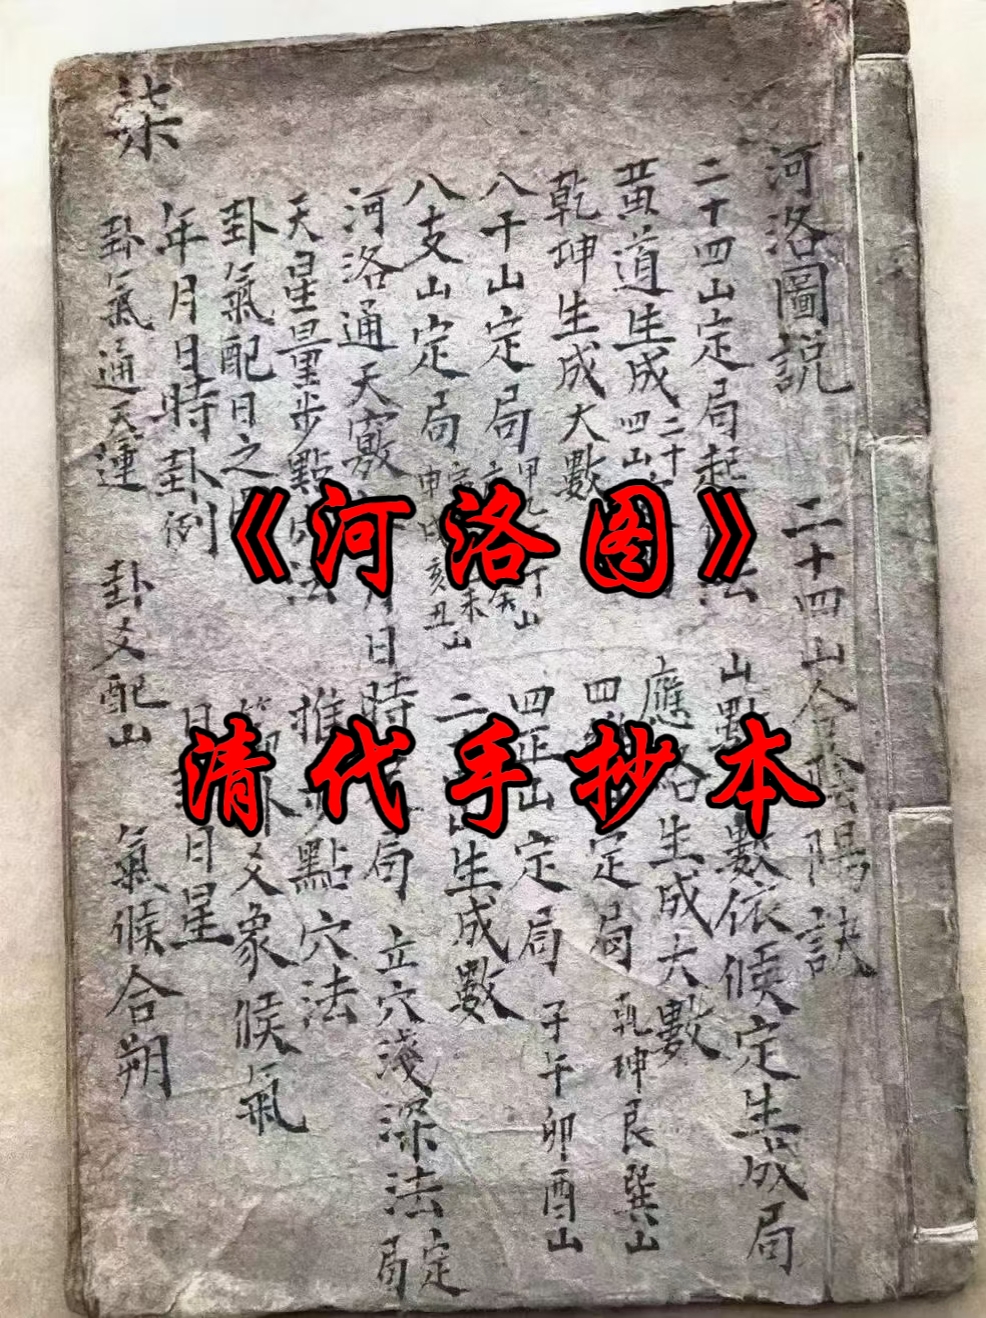 《河洛图》
清代手抄本
河洛圖説 二十四山合陰陽訣
二十四山定局起 法 山點 數依候定生成局
黃道生成 二十四山 應 洛生成大數
乾坤生成大數 四 定局 乾坤艮巽山
八干山定局 甲 丁 山 四正山定局 子午卯酉山
八支山定局 申 亥 未丑山 二 生成數
河洛通天竅 月日時 局 立穴淺深法定局
天星量步點 法 推 點穴法
卦氣配日之 卦爻象候氣
年月日時卦例 日 月星
卦氣通天運 卦爻配山 氣候合朔
柒